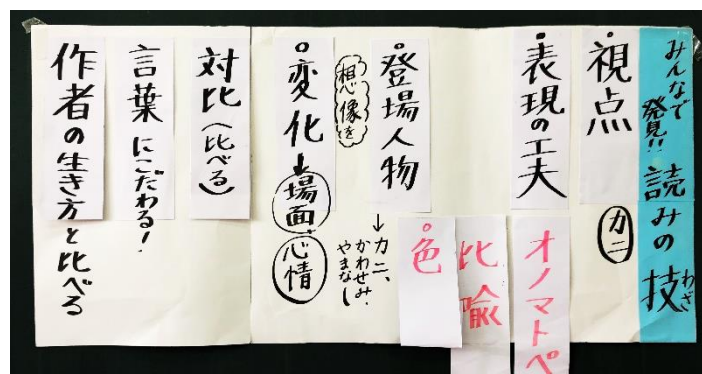 みんなで
発見!!
読みの技
わざ
・視点
カニ
・表現の工夫
オノマトペ
比喩
色
・登場人物
→カニ、
かわせみ・
やまなし
想像を
変化→場面・
心情
対比(比べる)
言葉にこだわる!
作者の生き方と比べる